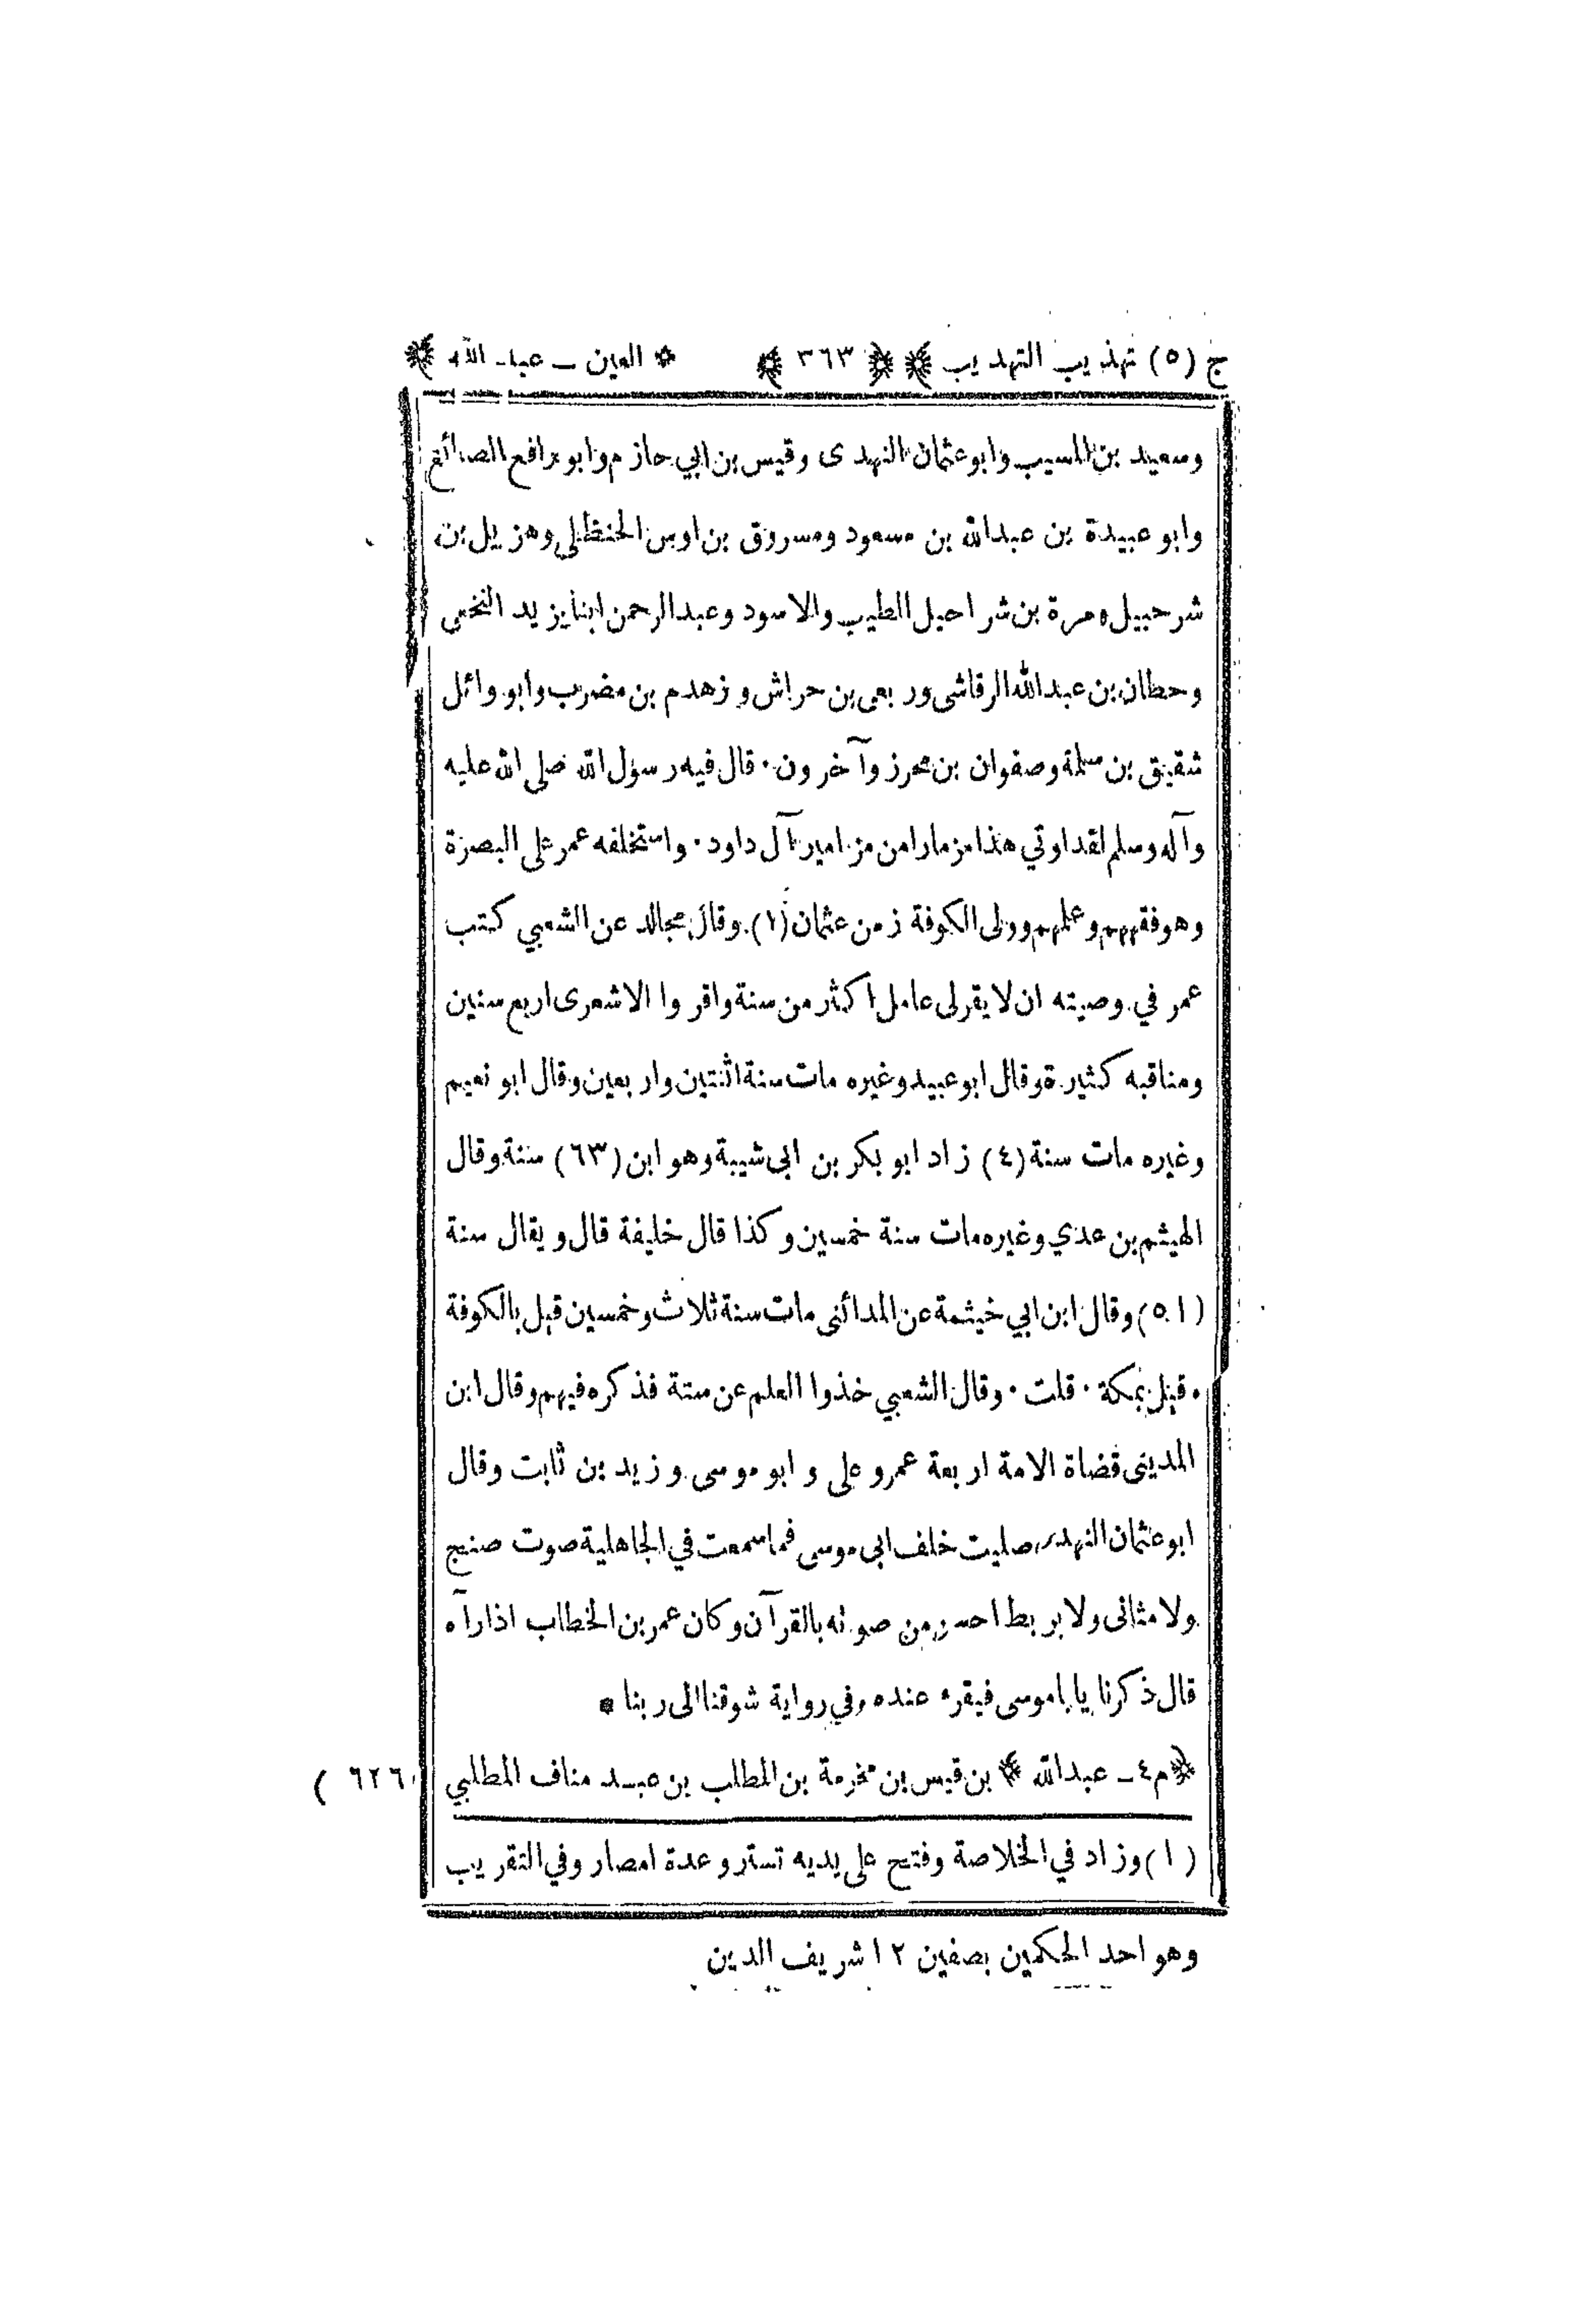 ج (٥) تهذيب التهذيب ﴾ ﴿ ٣٦٣ ﴾ * العين ــ عبد الله ﴾
وسعيد بن المسيب وابو عثمان النهدى وقيس بن ابي حازم وابو رافع الصائغ
وابو عبيدة بن عبدالله بن مسعود ومسروق بن اوس الحنظلى وهزيل بن
شرحبيل ومرة بن شراحيل الطيب والاسود وعبدالرحمن ابنا يزيد النخعى
وحطان بن عبدالله الرقاشى وربعى بن حراش وزهدم بن مضرب وابو وائل
شقيق بن سلمة وصفوان بن محرز وآخرون ٠ قال فيه رسول الله صلى الله عليه
وآله وسلم لقد اوتي هذا مزمارا من مزامير آل داود ٠ واستخلفه عمر على البصرة
وهو فقههم وعلمهم وولى الكوفة زمن عثمان (١) وقال مجالد عن الشعبي كتب
عمر في وصيته ان لا يقر لى عامل اكثر من سنة واقروا الاشعرى اربع سنين
ومناقبه كثيرة وقال ابو عبيد وغيره مات سنة اثنتين واربعين وقال ابو نعيم
وغيره مات سنة (٤) زاد ابو بكر بن ابى شيبة وهو ابن (٦٣) سنة وقال
الهيثم بن عدي وغيره مات سنة خمسين وكذا قال خليفة قال ويقال سنة
(٥١) وقال ابن ابي خيثمة عن المدائنى مات سنة ثلاث وخمسين قيل بالكوفة
وقيل بمكة ٠ قلت ٠ وقال الشعبي خذوا العلم عن ستة فذكره فيهم وقال ابن
المدينى قضاة الامة اربعة عمر وعلى وابو موسى وزيد بن ثابت وقال
ابو عثمان النهدى صليت خلف ابى موسى فما سمعت في الجاهلية صوت صنج
ولا مثانى ولا بربط احسن من صوته بالقرآن وكان عمر بن الخطاب اذا رآه
قال ذكرنا يا باموسى فيقرء عنده وفي رواية شوقنا الى ربنا *
﴿ م ٤ ــ عبدالله ﴾ بن قيس بن مخرمة بن المطلب بن عبد مناف المطلبي ( ٦٢٦
(١) وزاد في الخلاصة وفتح على يديه تستر وعدة امصار وفي التقريب
وهو احد الحكمين بصفين ١٢ شريف الدين